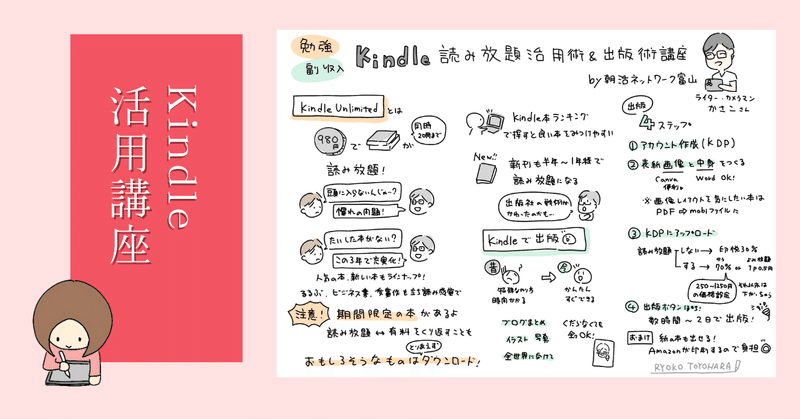 Kindle
活用講座
勉強
副収入
Kindle 読み放題活用術&出版術講座
by 朝活ネットワーク富山
ライター・カメラマン
かさこさん
Kindle Unlimited とは
980円 で が
同時
20冊まで
読み放題!
頭に入らないんじゃ…?
慣れの問題!
たいした本がない?
この3年で充実!
人気の本、新しい本もラインナップ!
るるぶ、ビジネス書、参考書も立ち読み感覚で
注意! 期間限定の本があるよ
読み放題↔有料をくり返すことも
とりあえず
おもしろそうなものはダウンロード!
Kindle本ランキング
で探すと良い本をみつけやすい
New!
新刊も半年~1年程で
読み放題になる
出版社の戦略が
かわったのかも…
Kindleで出版
昔
時間かかる
今
かんたん
すぐできる
ブログまとめ
イラスト 写真
全世界に向けて
くだらなくても
全OK!
出版
4ステップ。
①アカウント作成(KDP)
②表紙画像と中身をつくる
Canva
便利。
Word OK!
※画像レイアウトを気にしたい本は
PDF⇨mobiファイルに
③KDPにアップロード
読み放題
しない→印税35%
する→70%
から
or
読み放題
1P0.5円
250~1250円
の価格設定
それ以外は
④出版ボタンは1つ!
数時間~2日で出版!
おまけ 紙の本も出せる!
Amazonが印刷するので負担◎
RYOKO TOYOHARA